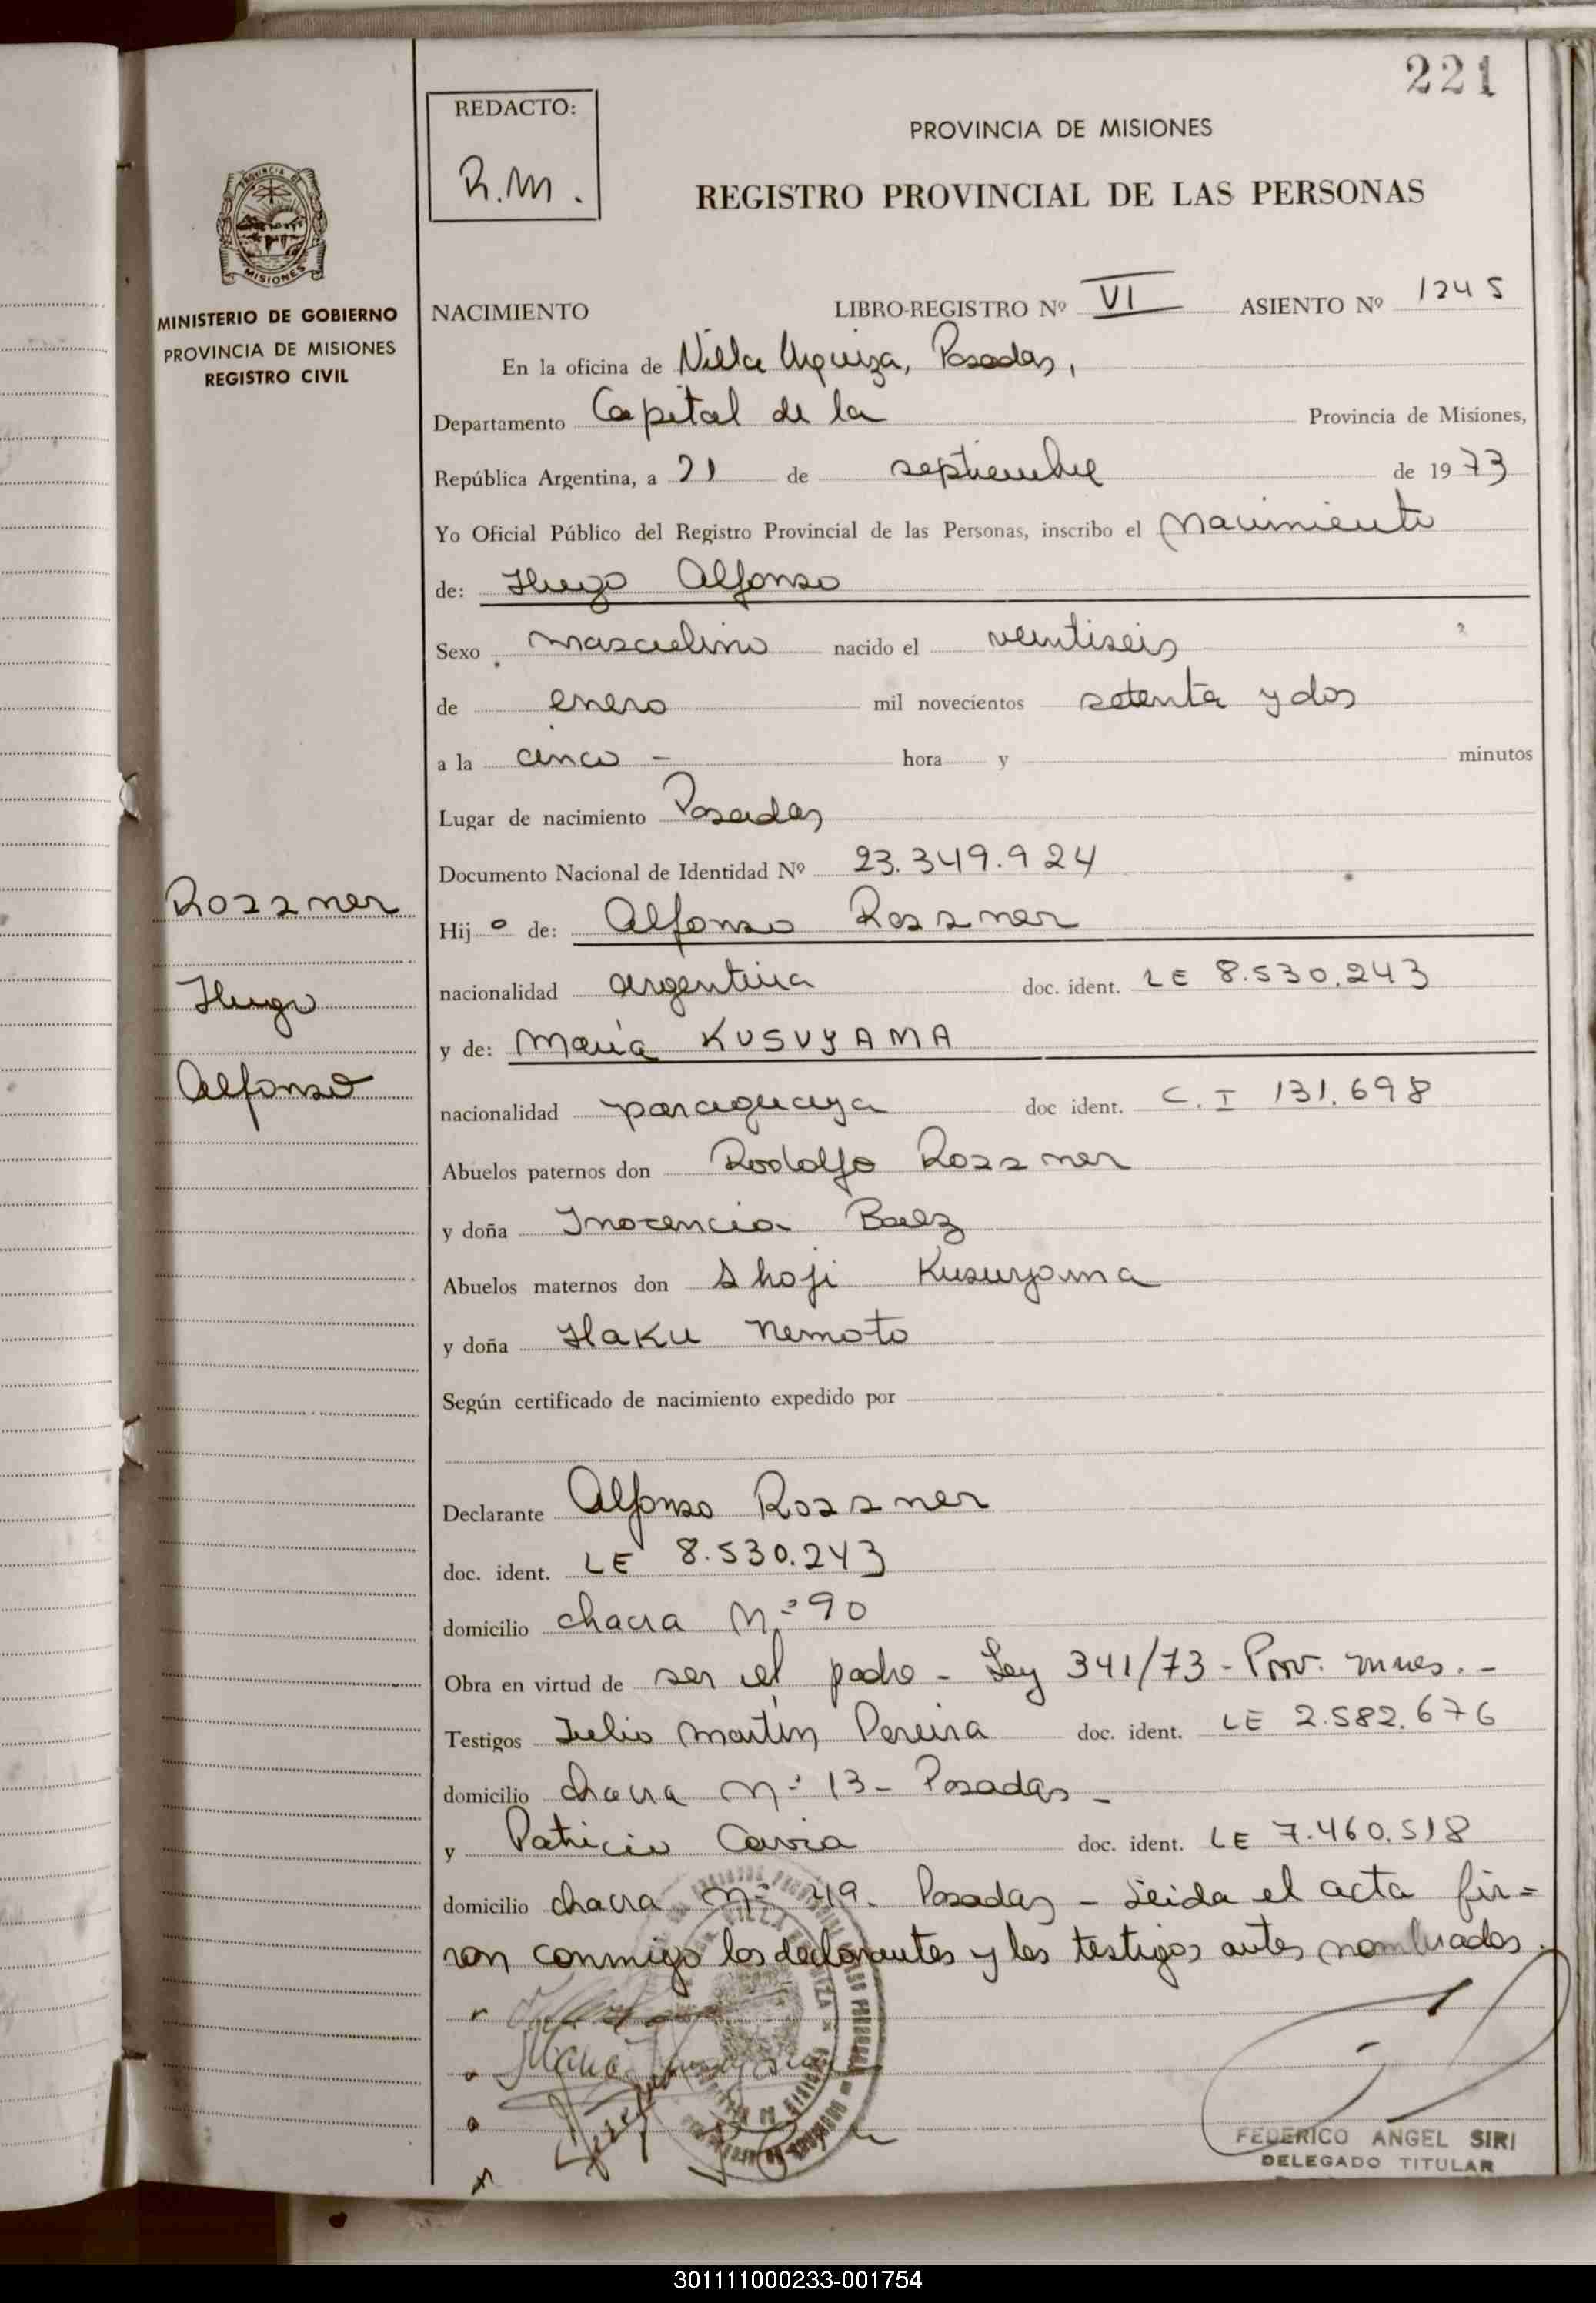 221
REDACTO:
R.M.
PROVINCIA DE MISIONES
REGISTRO PROVINCIAL DE LAS PERSONAS
MISIONES
MINISTERIO DE GOBIERNO
PROVINCIA DE MISIONES
REGISTRO CIVIL
NACIMIENTO LIBRO-REGISTRO Nº VI ASIENTO Nº 1245
En la oficina de Villa Urquiza, Posadas,
Departamento Capital de la Provincia de Misiones,
República Argentina, a 21 de septiembre de 1973
Yo Oficial Público del Registro Provincial de las Personas, inscribo el nacimiento
de: Hugo Alfonso
Sexo masculino nacido el veintiseis
de enero mil novecientos setenta y dos
a la cinco - hora y minutos
Lugar de nacimiento Posadas
Documento Nacional de Identidad Nº 23.349.924
Rozzner
Hugo
Alfonso
Hijo de: Alfonso Rozzner
nacionalidad argentina doc. ident. LE 8.530.243
y de: María KUSUYAMA
nacionalidad paraguaya doc ident. C.I 131.698
Abuelos paternos don Rodolfo Rozzner
y doña Inocencia Baez
Abuelos maternos don Shoji Kusuyama
y doña Haku Nemoto
Según certificado de nacimiento expedido por
Declarante Alfonso Rozzner
doc. ident. LE 8.530.243
domicilio chacra Nº 90
Obra en virtud de ser el padre - Ley 341/73 - Prov. Mnes. -
Testigos Julio Martín Pereira doc. ident. LE 2.582.676
domicilio chacra Nº 13 - Posadas -
y Patricio doc. ident. LE 7.460.518
domicilio chacra Nº 49. Posadas - Leida el acta fir=
man conmigo los declarantes y los testigos antes nombrados.
FEDERICO ANGEL SIRI
DELEGADO TITULAR
301111000233-001754